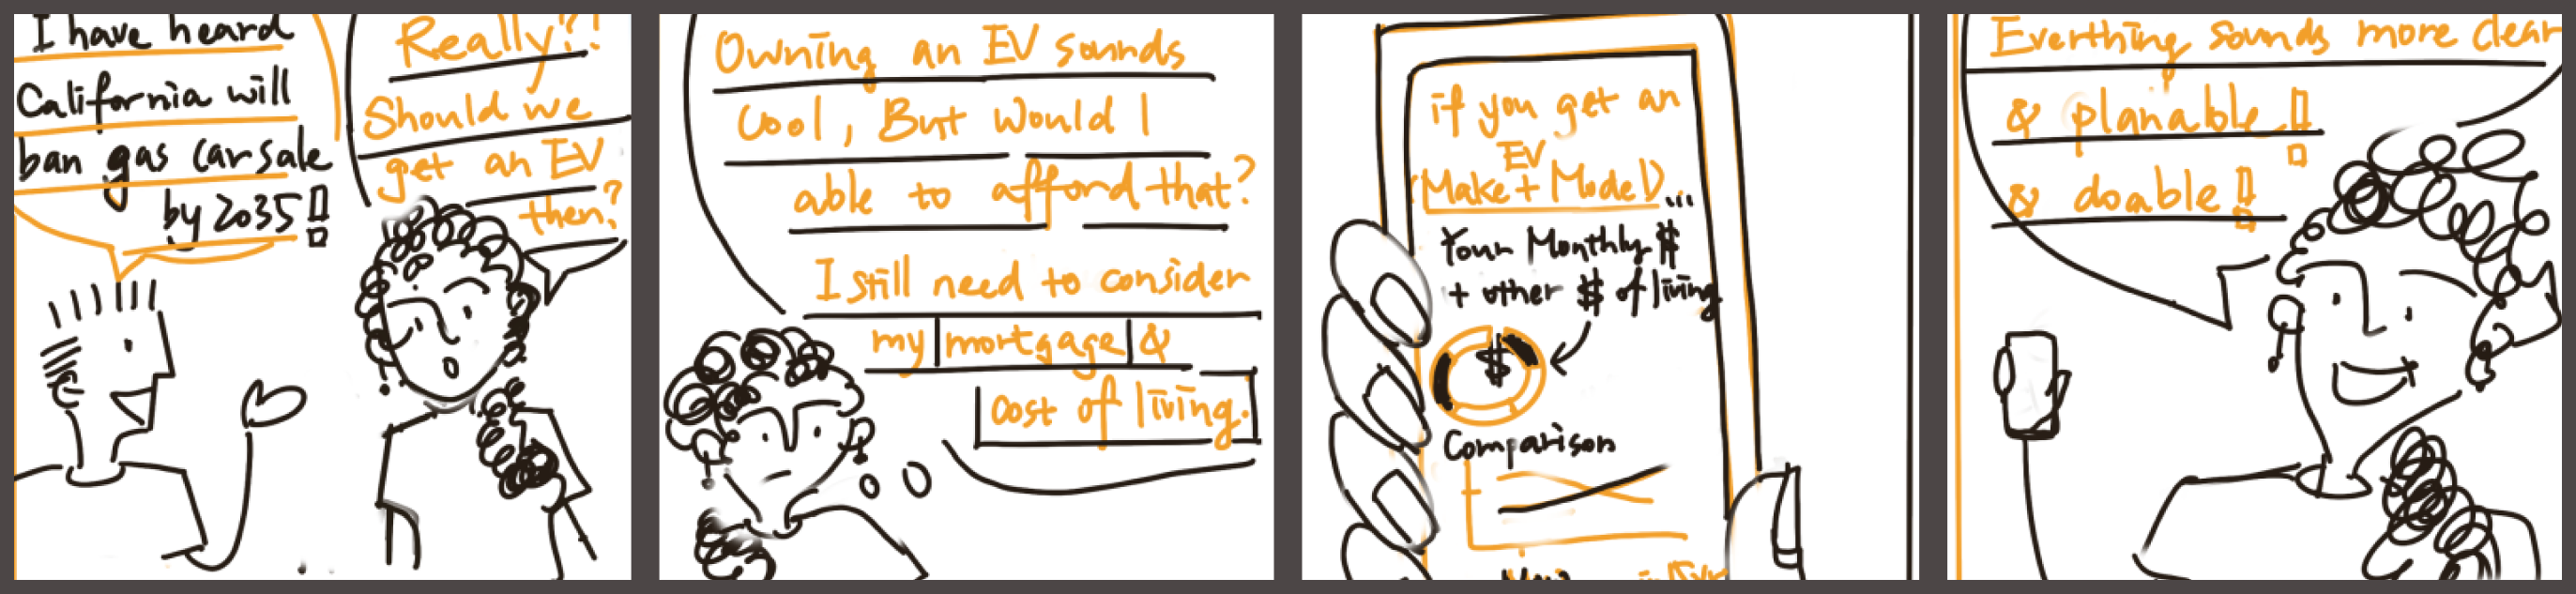 I have heard
California will
ban gas car sale
by 2035!
Really?!
Should we
get an EV
then?
Owning an EV sounds
Cool, But Would I
able to afford that?
I still need to consider
my mortgage &
cost of living.
if you get an
EV
(Make + Model)...
Your Monthly $
+ other $ of living
$
Comparison
Everthing sounds more clear
& planable!
& doable!